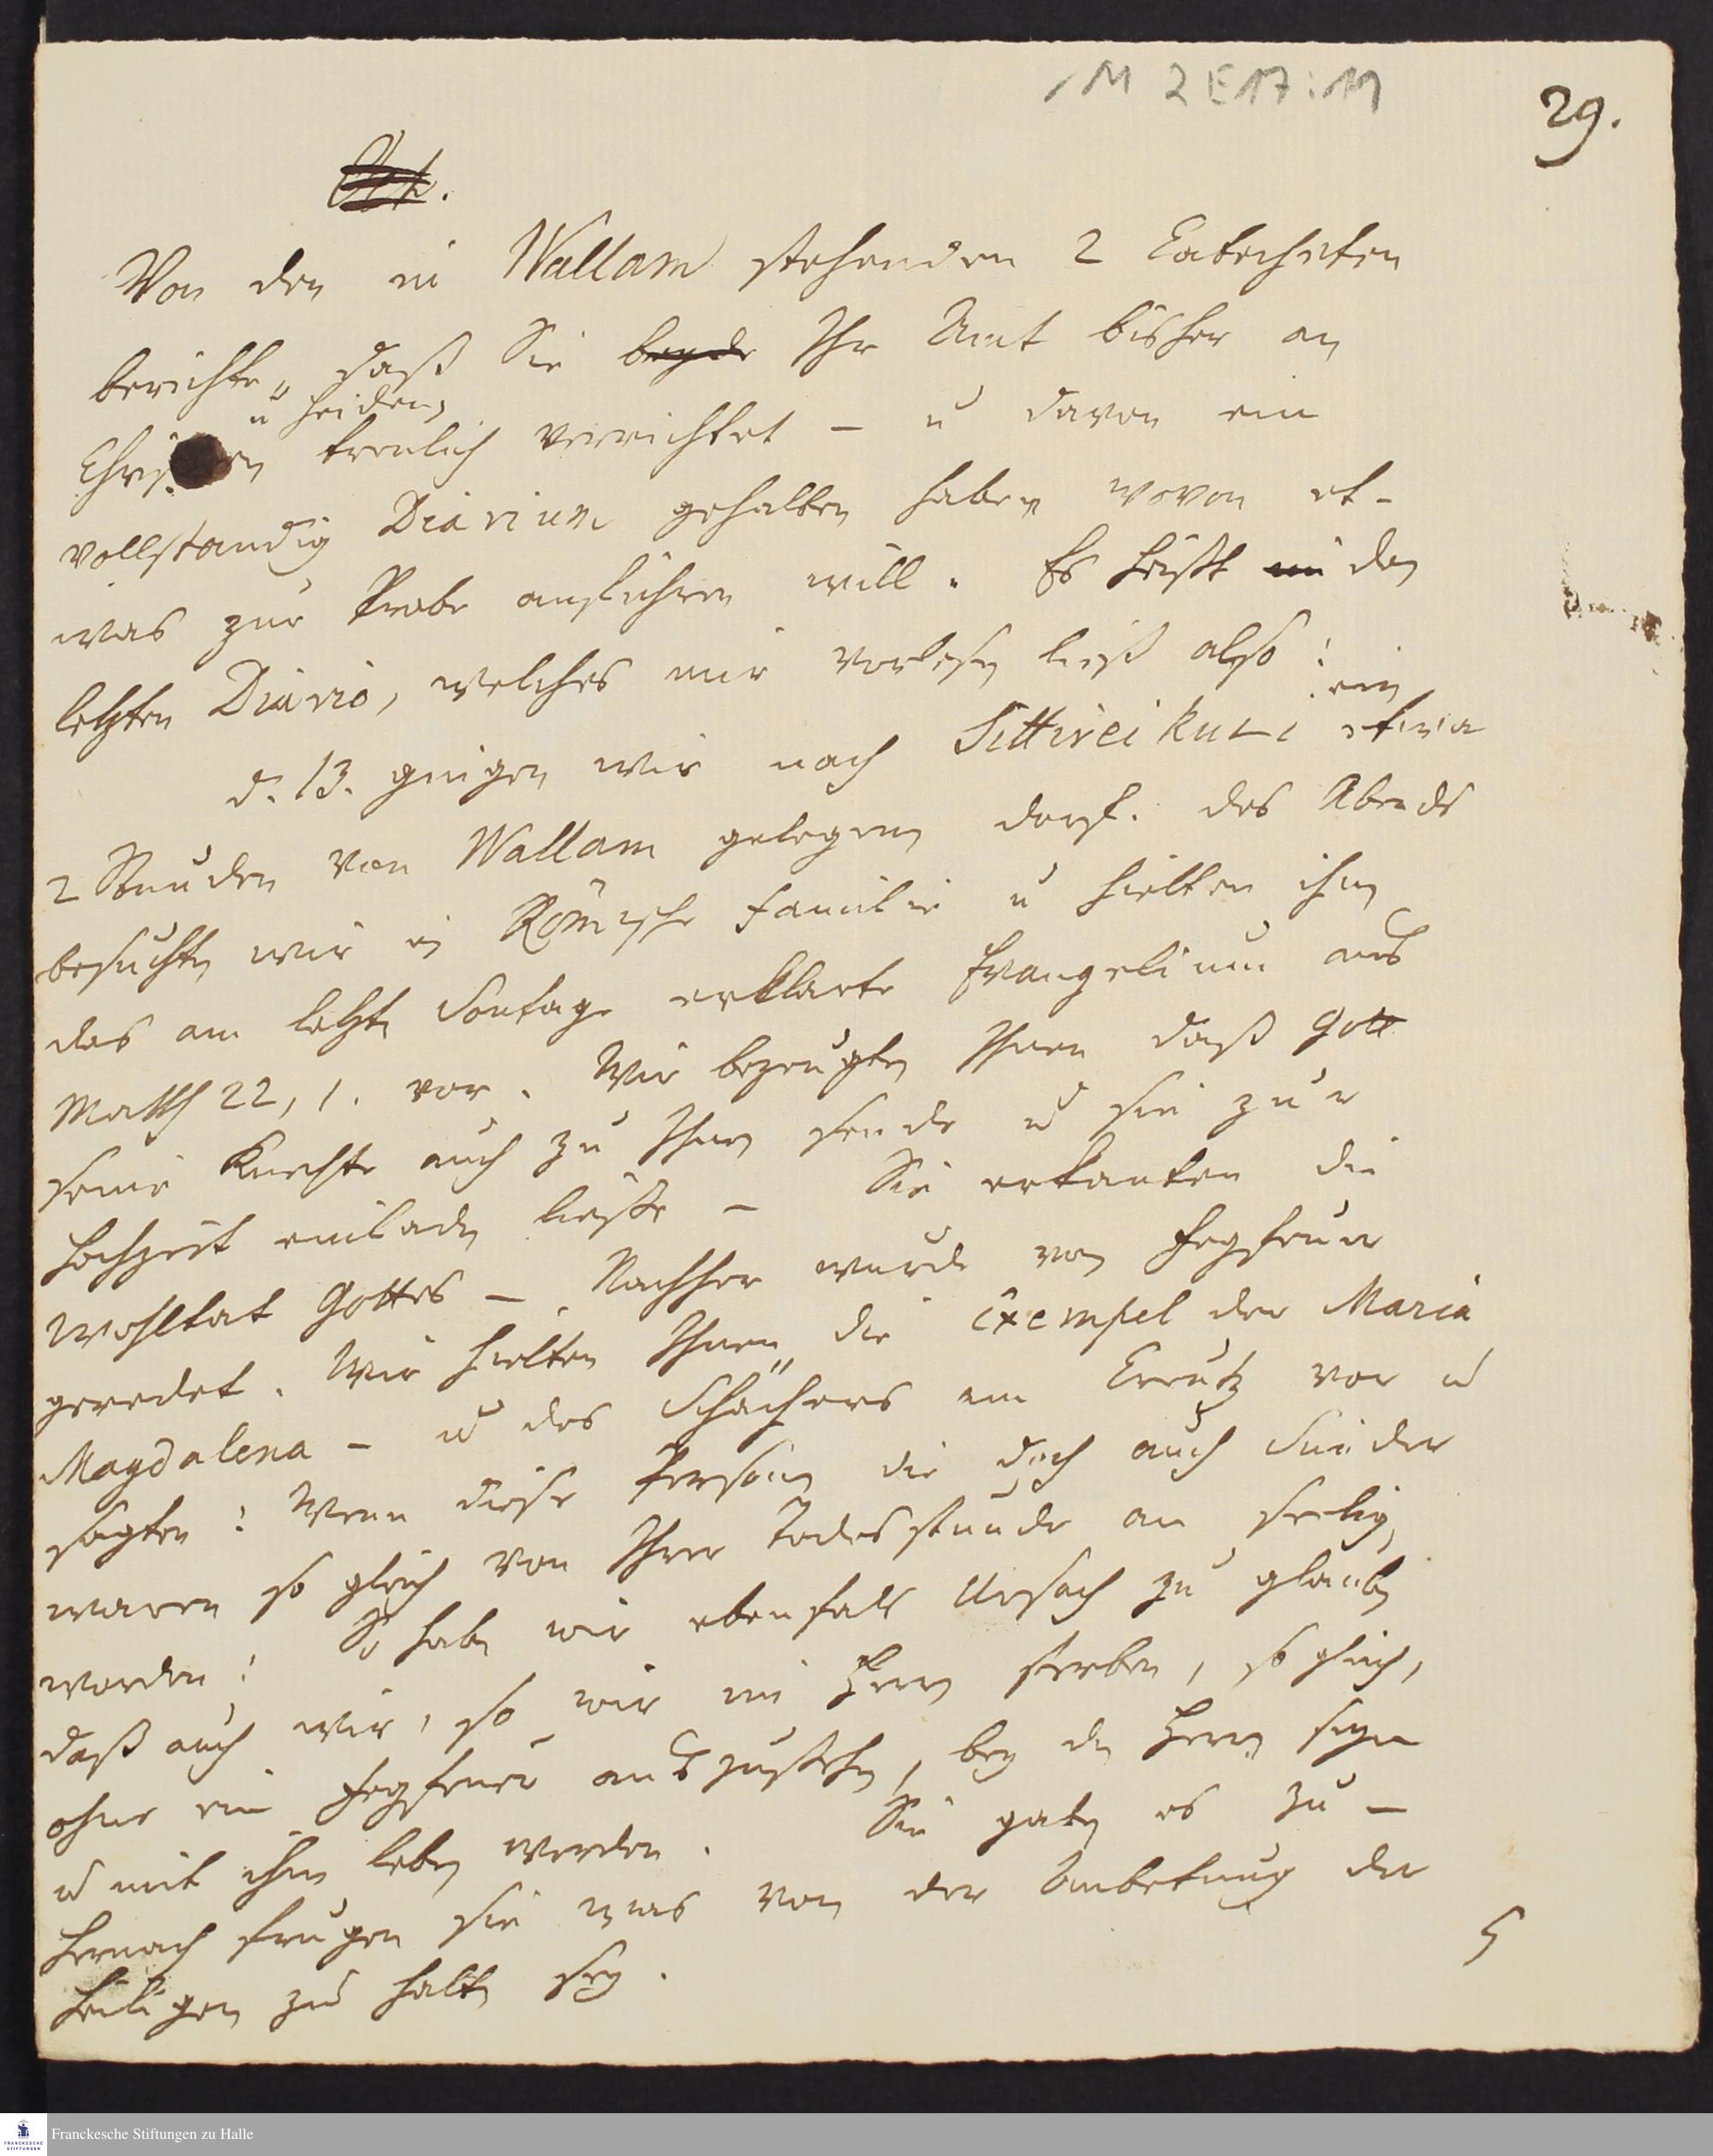 M 2 E 17 : 11
29.
Von den in Wallam stehenden 2 Catecheten
berichte, daß Sie beyde Ihr Amt bisher an
u Heiden
Christen treulich verrichtet – u davon ein
vollständig Diarium gehalten haben wovon et-
was zur Probe anführen will. Es heißt im den
letzten Diario, welches mir vorlesen ließ also:
ein
d. 13. giengen wir nach Sittireikuri etwa
2 Stunden von Wallam gelegenen dorf. des Abends
besuchten wir ei Römische Familie u hielten ihn
das am letzten Sontage erklärte Evangelium aus
Matth 22, 1. vor. Wir bezeugten Ihnen daß Gott
seine Knechte auch zu Ihnen sende u sie zur
Hochzeit einladen ließe – Sie erkanten die
Wohltat Gottes – Nachher wurde von Fegfeuer
geredet. Wir hielten Ihnen die Exempel der Maria
Magdalena – u des Schächers am Creutz vor u
sagten: Wenn diese Person die doch auch Sünder
waren so gleich von Ihrer Todesstunde an seelig
worden! So haben wir ebenfals Ursach zu glauben
daß auch wir, so wir im Herrn sterben, so gleich,
ohne ein Fegfeuer auszustehen, bey den Herrn seyn
u mit ihm leben werden. Sie gaben es zu –
Hernach frugen sie was von der Anbetung der
Heiligen zu halten sey.
Franckesche Stiftungen zu Halle